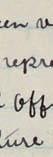 en v
repre
off
ture